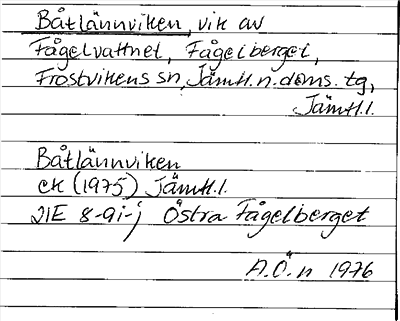 Båtlännviken, vik av
Fågelvattnet, Fågelberget,
Frostvikens sn, Jämtl. n. doms. tg,
Jämtl. l.
Båtlännviken
ek (1975) Jämtl. l.
21E 8-9i-j Östra Fågelberget
A.Ö. n 1976